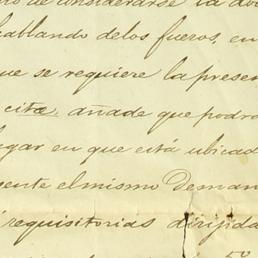 no de considerarse la do
hablando delos fueros, en
ue se requiere la presen
cita, añade que podra
ugar en que está ubicad
sente el mismo Deman
requisitorias dirijida